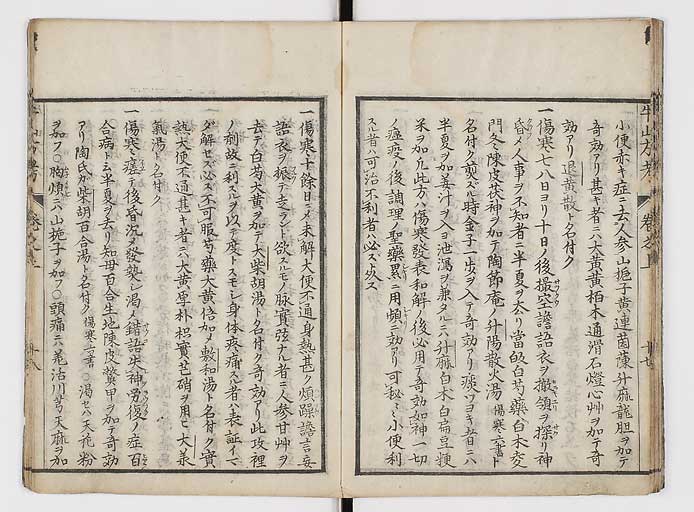 小便赤キ症ニ去人参山梔子黄連茵蔯升麻龍胆ヲ加テ
奇効アリ甚キ者ニハ大黄黄栢木通滑石燈心艸ヲ加テ奇
効アリ退黄散ト名付ク
一傷寒七八日ヨリ十日ノ後撮空譫語衣ヲ撒領ヲ探リ神
昏メ人事ヲ不知者ニ半夏ヲ去リ當皈白芍藥白木麦
門冬陳皮茯神ヲ加テ陶節庵ノ升陽散火湯傷寒六書ト
名付ク煎スル時金子一歩ヲ入テ奇効アリ痰ツヨキ者ニハ
半夏ヲ加姜汁ヲ入ヨ泄瀉ヲ兼タルニハ升麻白木白扁豆粳
米ヲ加凢此方ハ傷寒發表和解ノ後必用テ奇効如神一切
ノ痘疫ノ後調理ノ聖藥累ニ用頻ニ効アリ可秘々小便利
スル者ハ可治不利者ハ必ス死ス
一傷寒十余日メ未解大便不通身熱甚ク煩躁譫言妄
語衣ヲ振テ走ラント欲スルモノ脉實弦アル者ニ人参甘艸ヲ
去テ白芍大黄ヲ加テ大柴胡湯ト名付ク奇効アリ此攻裡
ノ劑故ニ利スルヲ以テ度トスモシ身体疼痛スル者ハ表証イマ
タ解セス必ス不可服芍藥大黄倍加メ敷和湯ト名付ク實
熱大便不通甚キ者ニハ大黄厚朴枳實芒硝ヲ用ヒ大兼
氣湯ト名付ク
一傷寒瘥テ後昏沉メ發熱シ渇メ錯語失神労復ノ症百
合病ト云半夏ヲ去リ知母百合生地陳皮鱉甲ヲ加テ奇効
アリ陶氏カ柴胡百合湯ト名付ク傷寒六書〇渇セハ天花粉
ヲ加フ〇胸煩ニハ山梔子ヲ加フ〇頭痛ニハ羗活川芎天麻ヲ加